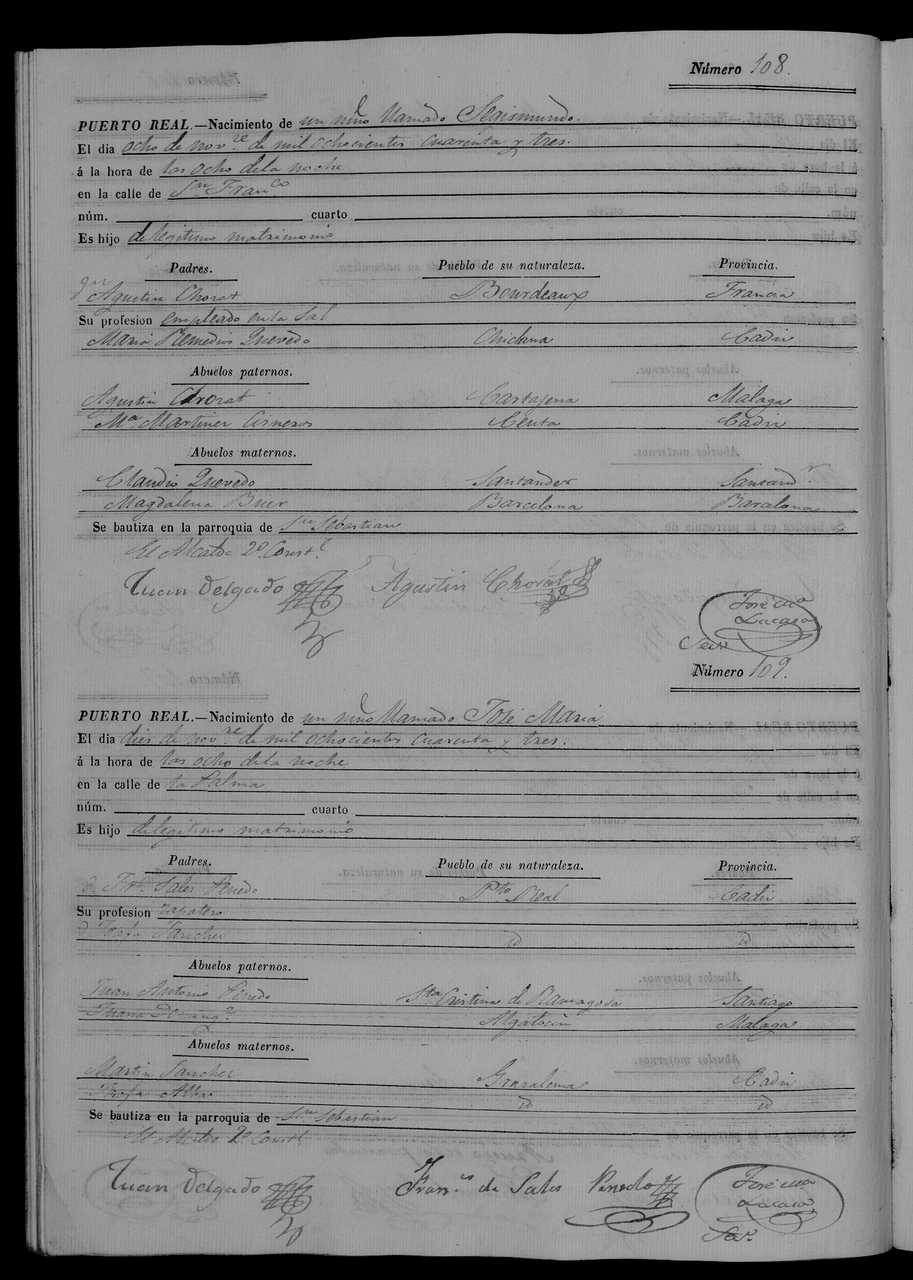 Número 108.
PUERTO REAL.—Nacimiento de un niño llamado Segismundo.
El dia ocho de nov.re de mil ochocientos cuarenta y tres.
á la hora de las ocho de la noche
en la calle de Sn Franco
núm. cuarto
Es hijo de legitimo matrimonio
Padres. Pueblo de su naturaleza. Provincia.
Agustin Chorat Bourdeaux Francia
Su profesion empleado en la Sal
Maria Remedios Quevedo Chiclana Cadiz
Abuelos paternos.
Agustin Chorat Cartajena Malaga
Ma Martinez Cisneros Ceuta Cadiz
Abuelos maternos.
Claudio Quevedo Santander Santandr
Magdalena Barcelona Barcelona
Se bautiza en la parroquia de Sn Sebastian
El Alcalde 2º Constl
Juan Delgado Agustin Chorat
José ma
Lacasa
Secr
Número 109.
PUERTO REAL.—Nacimiento de un niño llamado José Maria
El dia diez de nov.re de mil ochocientos cuarenta y tres.
á la hora de las ocho de la noche
en la calle de la Palma
núm. cuarto
Es hijo de legitimo matrimonio
Padres. Pueblo de su naturaleza. Provincia.
Sales Pinedo Pto Real Cadiz
Su profesion zapatero
Josefa Sanchez id id
Abuelos paternos.
Juan Antonio Pinedo Sta Cristina de Santiago
Juana Doming Algatocin Malaga
Abuelos maternos.
Martin Sanchez Grazalema Cadiz
Josefa id id
Se bautiza en la parroquia de Sn Sebastian
El Alcalde 2º Constl
Juan Delgado Franco de Sales Pinedo
José ma
Lacasa
Secr